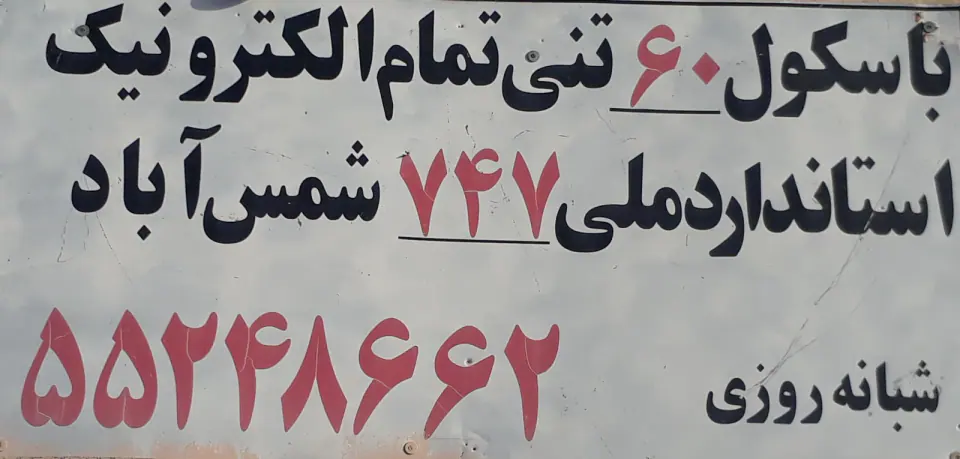 باسکول ۶۰ تنی تمام الکترونیک
استاندارد ملی ۷۴۷ شمس آباد
شبانه روزی ۵۵۲۴۸۶۶۲